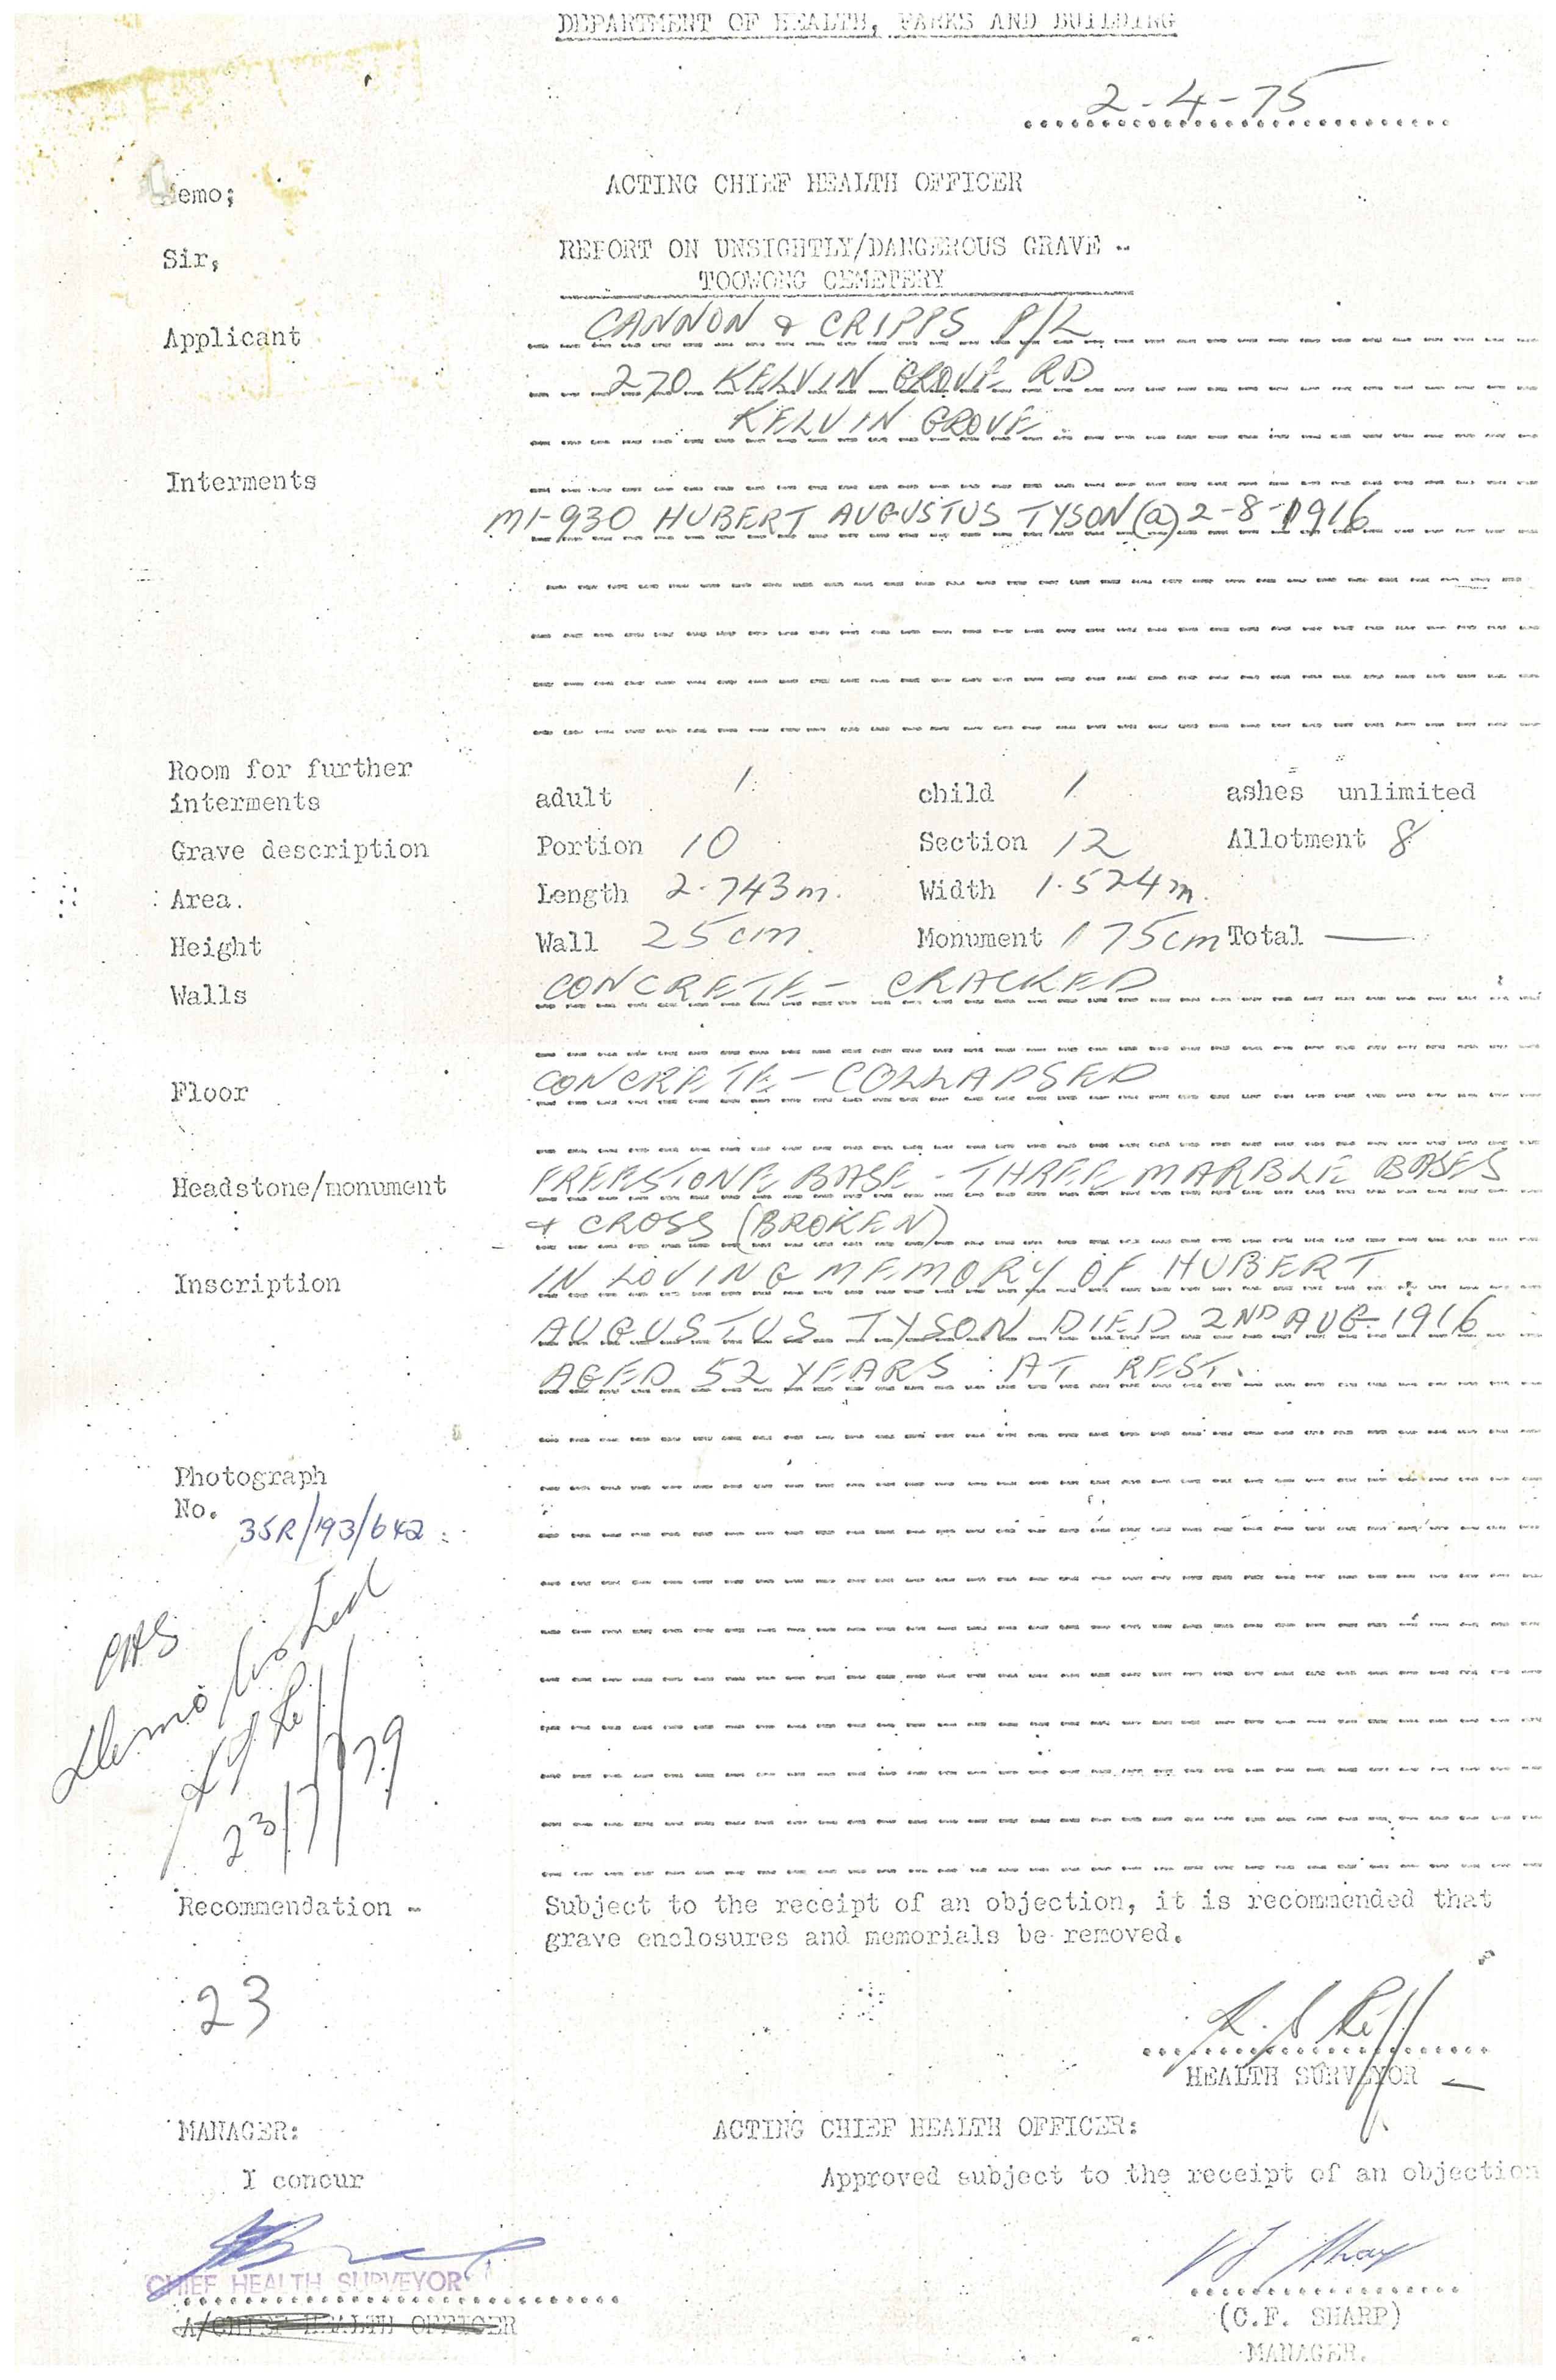 DEPARTMENT OF HEALTH, PARKS AND BUILDING
2-4-75
Memo; ACTING CHIEF HEALTH OFFICER
Sir, REPORT ON UNSIGHTLY/DANGEROUS GRAVE -
TOOWONG CEMETERY
Applicant CANNON & CRIPPS P/L
270 KELVIN GROVE RD
KELVIN GROVE
Interments
M1-930 HUBERT AUGUSTUS TYSON (a) 2-8-1916
Room for further
interments adult 1 child 1 ashes unlimited
Grave description Portion 10 Section 12 Allotment 8
Area. Length 2.743m. Width 1.524m.
Height Wall 25cm Monument 175cm Total —
Walls CONCRETE - CRACKED
Floor CONCRETE - COLLAPSED
Headstone/monument FREESTONE BASE - THREE MARBLE BASES
& CROSS (BROKEN)
Inscription IN LOVING MEMORY OF HUBERT
AUGUSTUS TYSON DIED 2ND AUG 1916
AGED 52 YEARS : AT REST.
Photograph
No. 35R/193/642
Demolished
23/7/79
Recommendation - Subject to the receipt of an objection, it is recommended that
grave enclosures and memorials be removed.
23
HEALTH SURVEYOR
MANAGER: ACTING CHIEF HEALTH OFFICER:
I concur Approved subject to the receipt of an objection
CHIEF HEALTH SURVEYOR
A/CHIEF HEALTH OFFICER
(C.F. SHARP)
MANAGER.